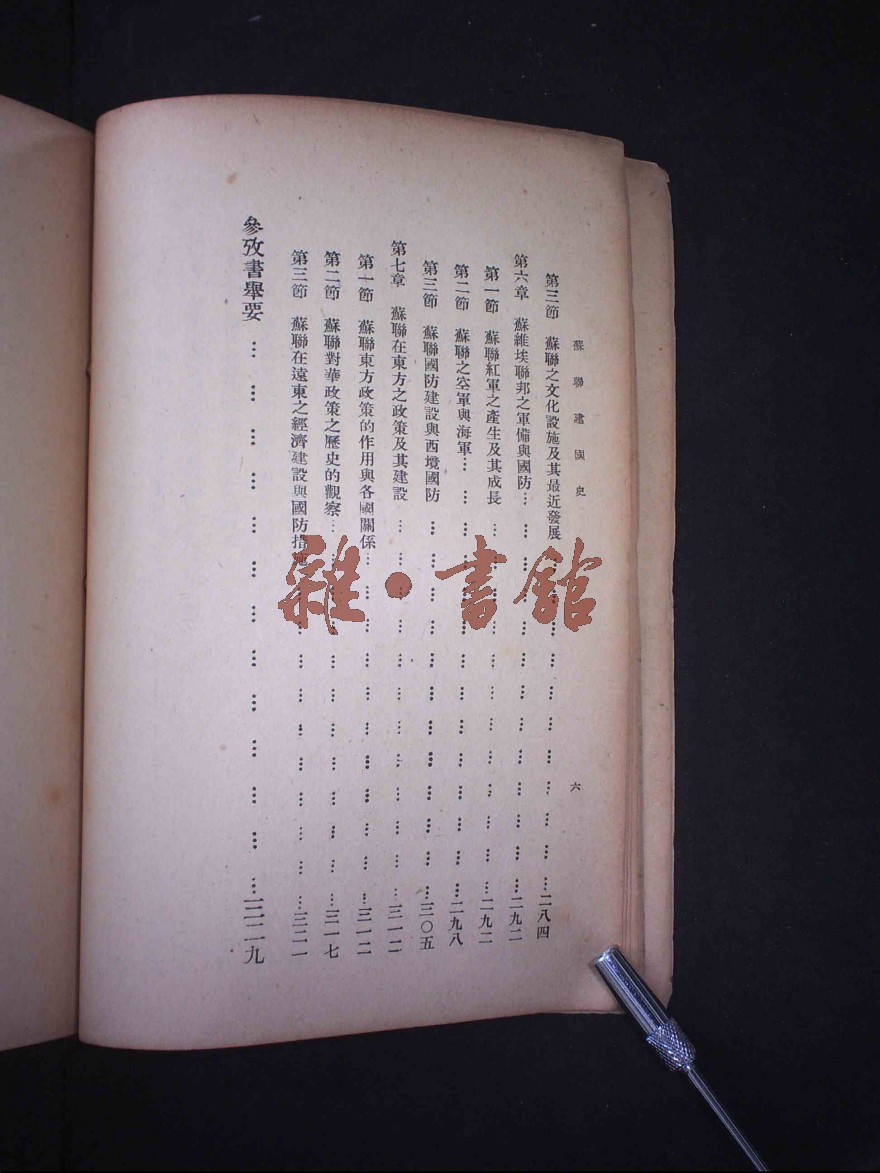 蘇聯建國史
六
第三節 蘇聯之文化設施及其最近發展………………二八四
第六章 蘇維埃聯邦之軍備與國防………………二九二
第一節 蘇聯紅軍之產生及其成長………………二九二
第二節 蘇聯之空軍與海軍………………二九八
第三節 蘇聯國防建設與西境國防………………三〇五
第七章 蘇聯在東方之政策及其建設………………三一二
第一節 蘇聯東方政策的作用與各國關係………………三一二
第二節 蘇聯對華政策之歷史的觀察………………三一七
第三節 蘇聯在遠東之經濟建設與國防措施………………三二一
參攷書舉要………………三二九
雜·書館